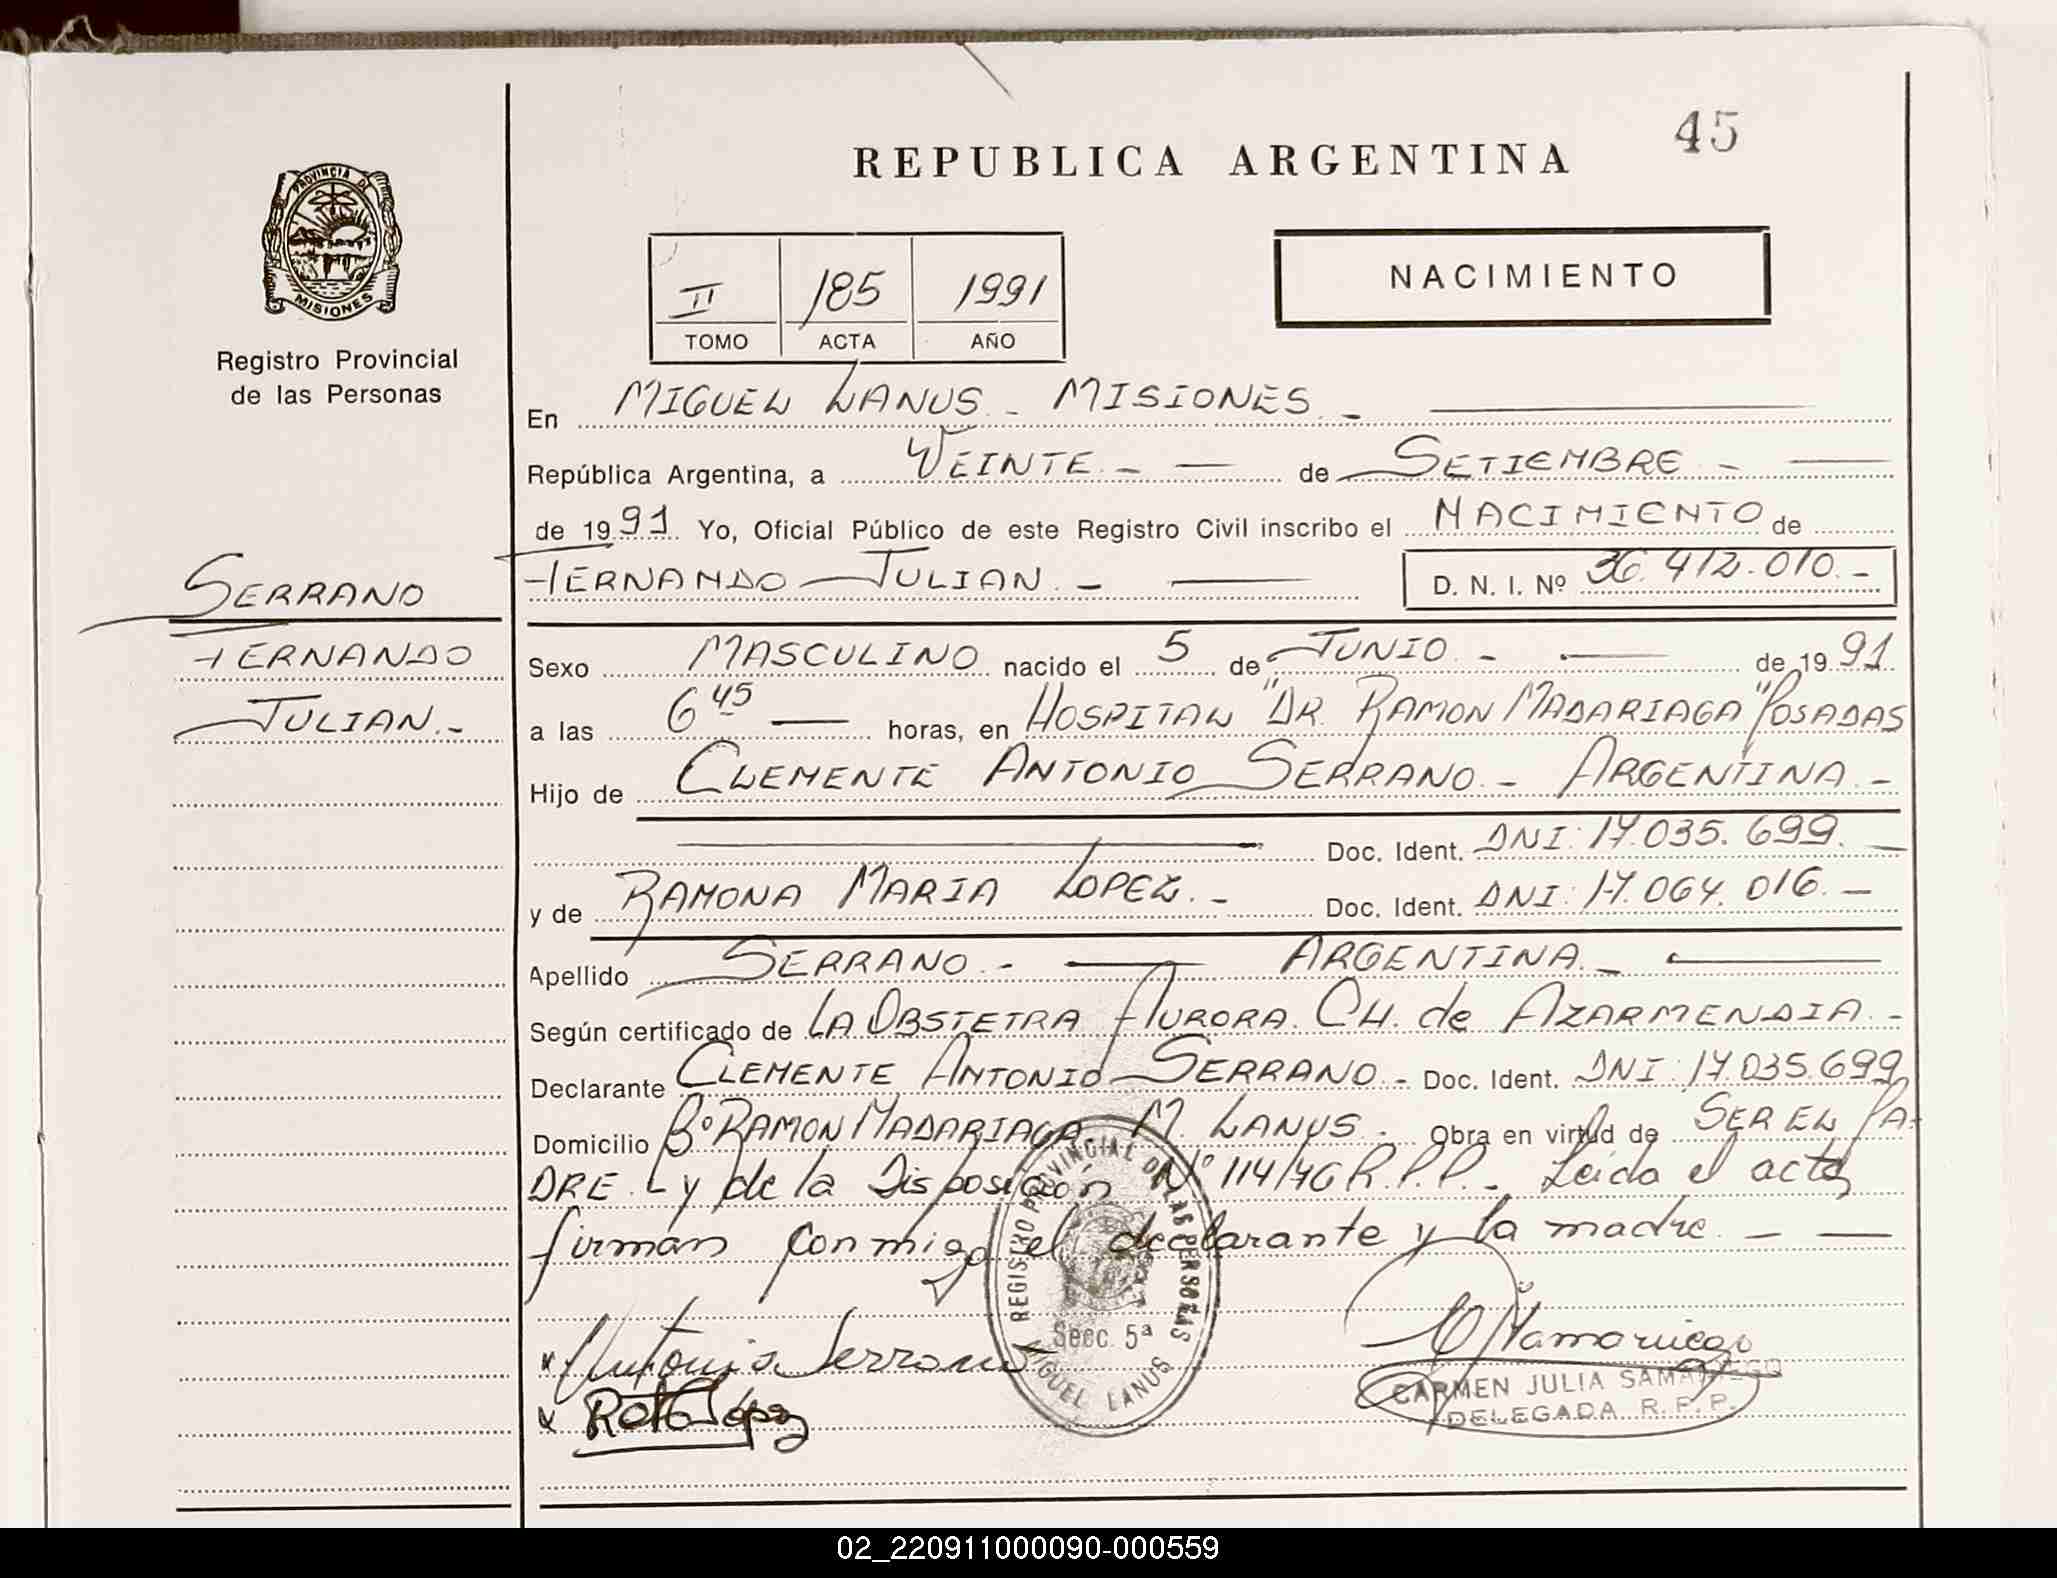 45
REPUBLICA ARGENTINA
PROVINCIA DE
MISIONES
Registro Provincial
de las Personas
II 185 1991
TOMO ACTA AÑO
NACIMIENTO
En MIGUEL LANUS - MISIONES. -
República Argentina, a VEINTE - de SETIEMBRE -
de 1991. Yo, Oficial Público de este Registro Civil inscribo el NACIMIENTO de
FERNANDO JULIAN. - D. N. I. Nº 36.412.010.-
SERRANO
FERNANDO
JULIAN.-
Sexo MASCULINO nacido el 5 de JUNIO - de 1991
a las 6 45 horas, en HOSPITAL "DR. RAMON MADARIAGA" POSADAS
Hijo de CLEMENTE ANTONIO SERRANO - ARGENTINA -
Doc. Ident. DNI: 17.035.699.
y de RAMONA MARIA LOPEZ. - Doc. Ident. DNI: 17.064.016. -
Apellido SERRANO. - ARGENTINA. -
Según certificado de LA OBSTETRA AURORA CH. de AZARMENDIA. -
Declarante CLEMENTE ANTONIO SERRANO. - Doc. Ident. DNI: 17.035.699
Domicilio Bº RAMON MADARIAGA M. LANUS. Obra en virtud de SER EL PA-
DRE. - y de la Disposición Nº 114/76 R.P.P. - Leida el acta
firman conmigo el declarante y la madre. -
REGISTRO PROVINCIAL DE LAS PERSONAS
Secc. 5ª
MIGUEL LANUS
x Antonio Serrano
x López
CARMEN JULIA SAMANIEGO
DELEGADA R.P.P.
02_220911000090-000559